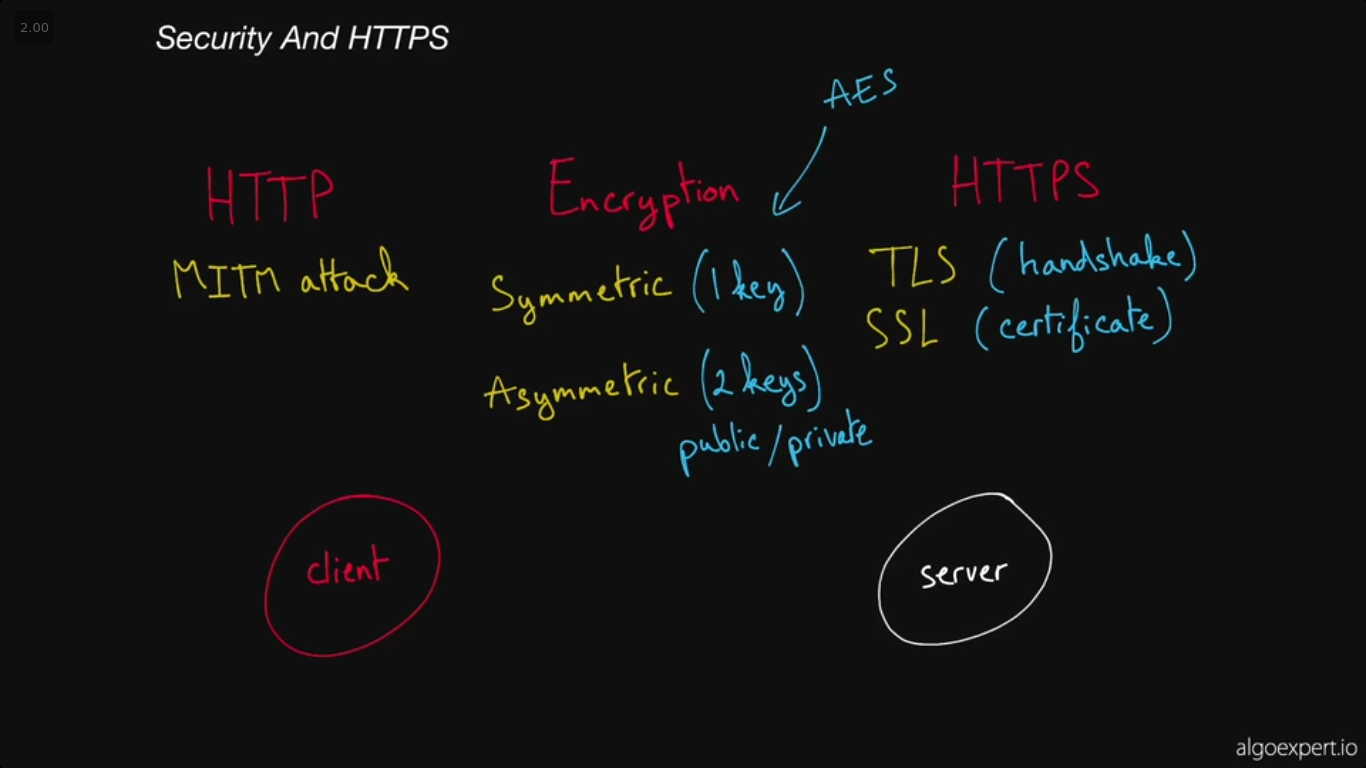 2.00
Security And HTTPS
AES
HTTP
Encryption
HTTPS
MITM attack
Symmetric (1 key)
Asymmetric (2 keys)
public / private
TLS (handshake)
SSL (certificate)
client
server
algoexpert.io